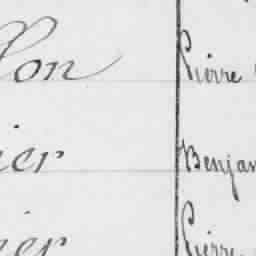 lon Pierre
ier Benjam
ier Pierre